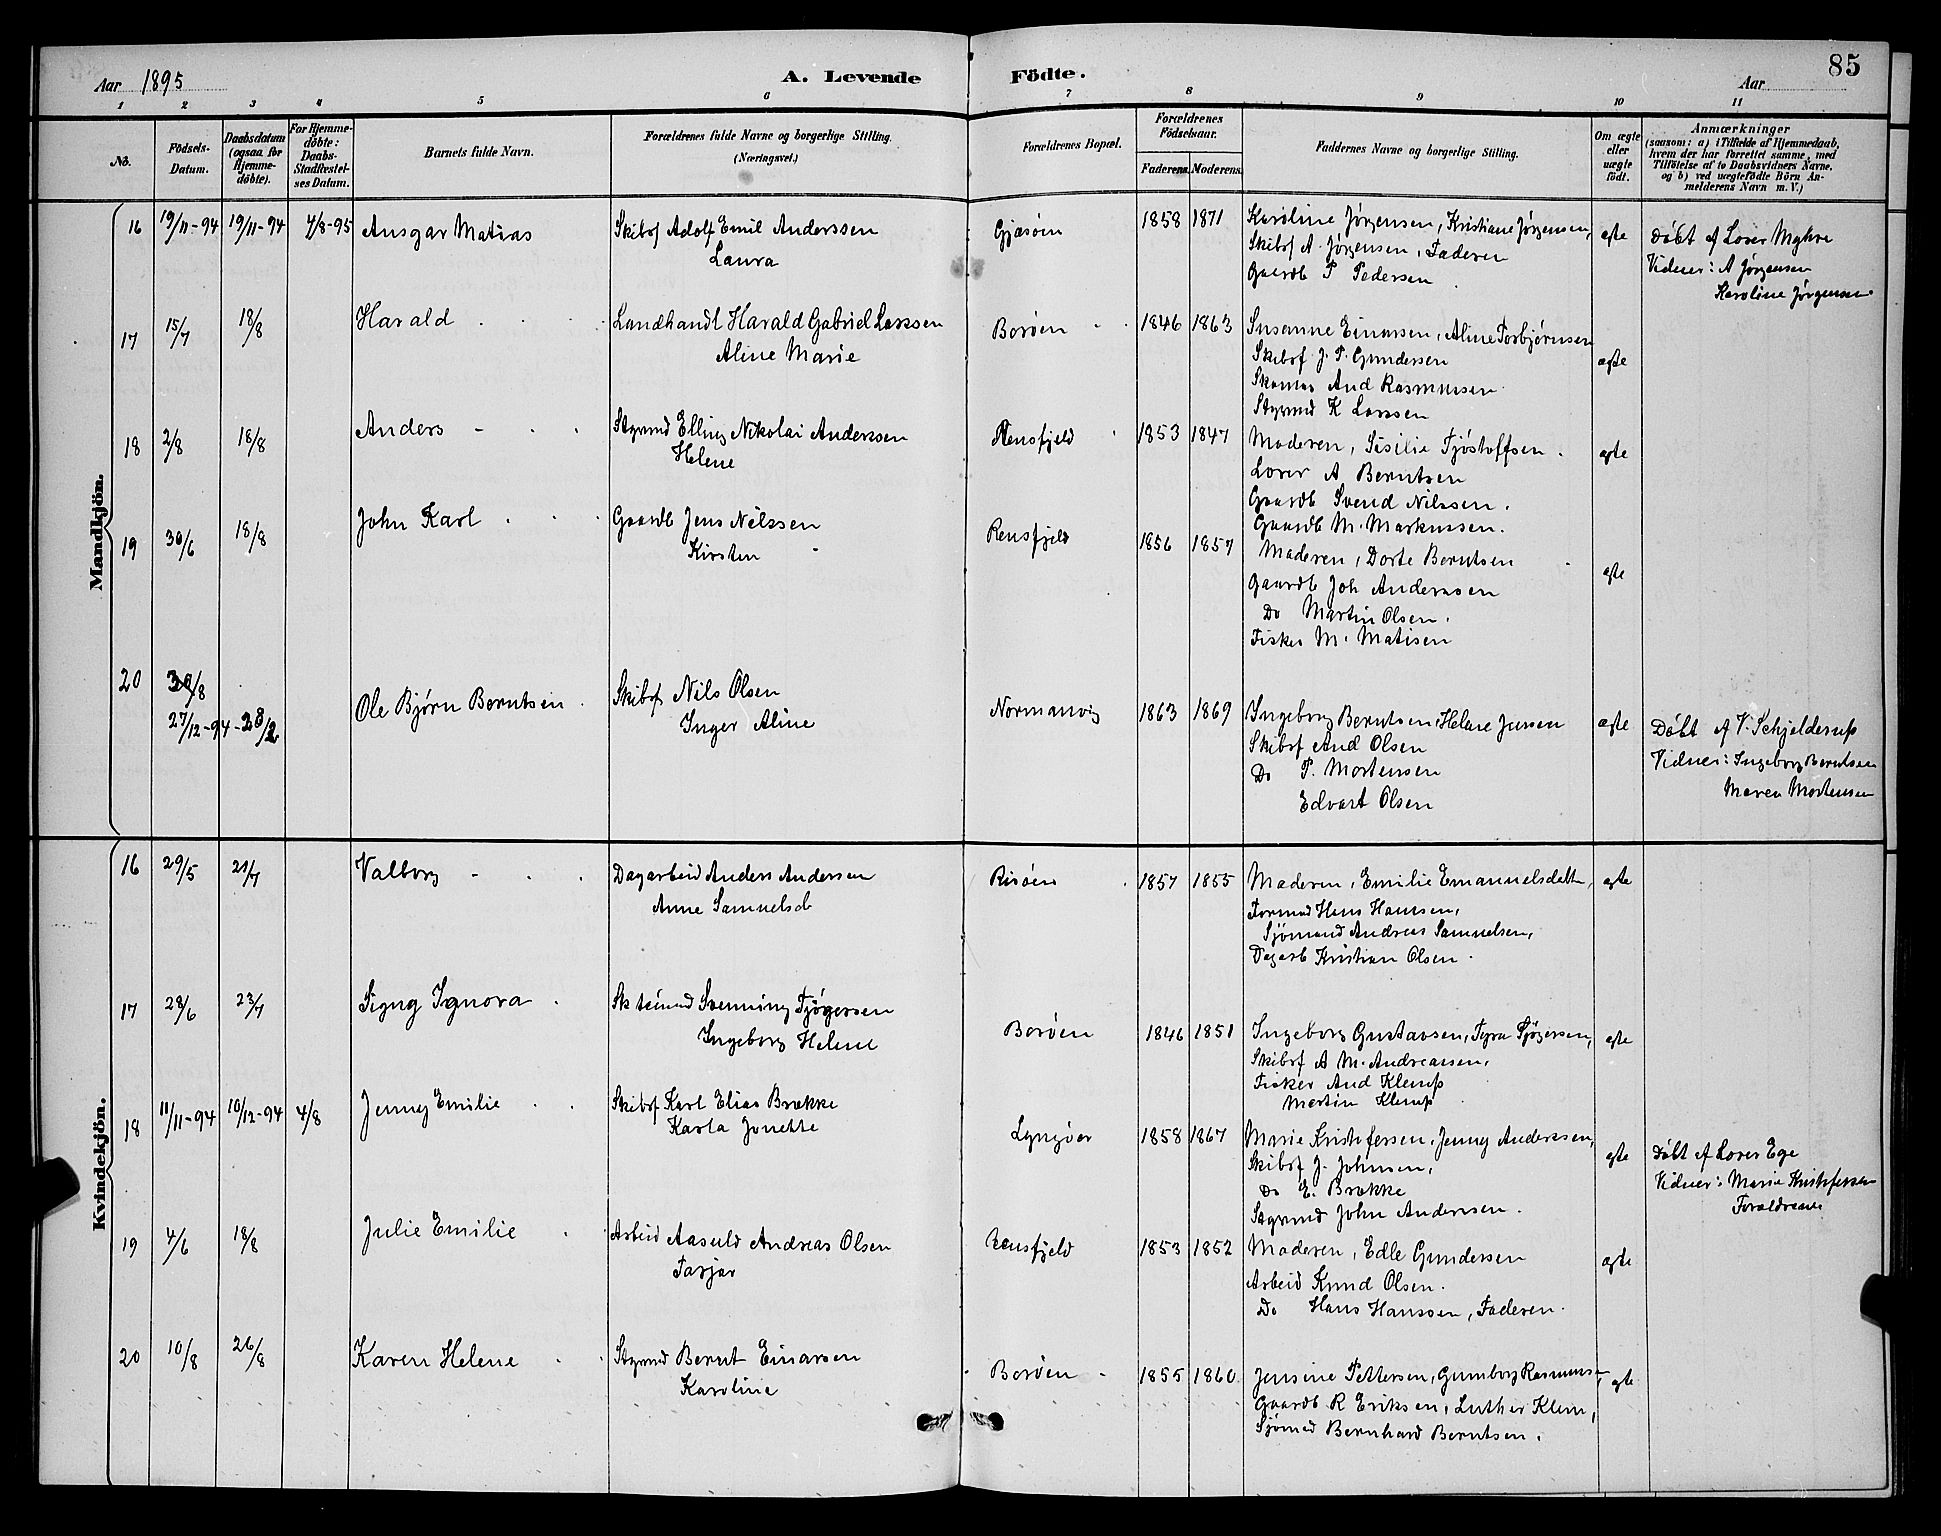 Aar 1895
A. Levende Födte.
Aar
85
1 2 3 4 5 6 7 8 9 10 11
No.
Födsels-Datum.
Daabsdatum (ogsaa for Hjemme-döbte).
For Hjemme-döbte: Daabs-Stadfæstel-ses Datum.
Barnets fulde Navn.
Forældrenes fulde Navne og borgerlige Stilling.
(Næringsvei.)
Forældrenes Bopæl.
Forældrenes Födselsaar.
Faderens. Moderens.
Faddernes Navne og borgerlige Stilling.
Om ægte eller uægte födt.
Anmærkninger
(saasom: a) i Tilfælde af Hjemmedaab,
hvem der har forrettet samme, med
Tilföielse af to Daabsvidners Navne,
og b) ved uægtefödte Börn An-
melderens Navn m. V.)
Mandkjön.
16 19/11-94 19/11-94 4/8-95 Ansgar Matias
Skibsf Adolf Emil Anderssen
Laura
Gjæsøen 1858 1871
Karoline Jørgensen, Kristiane Jørgensen,
Skibsf A. Jørgensen, Faderen
Gaardb P Pedersen
ægte
Døbt af Loser Myhre
Vidner: A Jørgensen
Karoline Jørgensen
17 15/7 18/8 Harald
Landhandl Harald Gabriel Larssen
Aline Marie
Borøen 1846 1863
Susanne Einarsen, Aline Torbjørnsen
Skibsf J. P. Gundersen
And Rasmussen
Styrmd K Larssen
ægte
18 2/8 18/8 Anders
Styrmd Elling Nikolai Anderssen
Helene
Rensfjeld 1853 1847
Moderen, Sisilie Tjöstoffsen
Loser A Berntsen
Gaardb Svend Nilssen.
Gaardb M. Markussen.
ægte
19 30/6 18/8 John Karl
Gaardb Jens Nilssen
Kirsten
Rensfjeld 1856 1857
Moderen, Dorte Berntsen
Gaardb Joh Anderssen
Do Martin Olsen.
Fisker M. Matisen
ægte
20 30/8
27/12-94 - 28/2
Ole Bjørn Berntsen
Skibsf Nils Olsen
Inger Aline
Normanvig 1863 1869
Ingeborg Berntsen, Helene Jensen
Skibsf And Olsen
Do P. Mortensen
Edvart Olsen
ægte
Døbt af V. Schjelderup
Vidner: Ingeborg Berntsen
Maren Mortensen
Kvindekjön.
16 29/5 21/7 Valborg
Dagarbeid Anders Andersen
Anne Samuelsd
Risöen 1857 1855
Moderen, Emilie Emanuelsdatte,
Formad Hans Hansen,
Sjømand Andreas Samuelsen,
Dagarb Kristian Olsen
ægte
17 28/6 23/7 Signy Ignora
Svenning Tjøgersen
Ingeborg Helene
Borøen 1846 1851
Ingeborg Gustavsen, Tyra Tjøgersen,
Skibsf A M. Andreassen,
Fisker And Klemp
Martin Klemp
ægte
18 11/11-94 10/12-94 4/8 Jenny Emilie
Skibsf Karl Elias Brække
Karla Jonette
Lyngöer 1858 1867
Marie Kristofersen, Jenny Anderssen,
Skibsf J. Johnsen,
Do E. Brække
Styrmd John Andersen.
ægte
Döbt af Loser Ege
Vidner: Marie Kristofersen
Foraldrene
19 4/6 18/8 Julie Emilie
Arbeid Aasuld Andreas Olsen
Tarjer
Rensfjeld 1853 1852
Moderen, Edle Gundersen
Arbeid Knud Olsen.
Do Hans Hanssen, Faderen.
ægte
20 10/8 26/8 Karen Helene
Styrmd Bernt Einarsen
Karoline
Borøen 1855 1860
Jensine Pettersen, Gumborg Rasmuss
Gaardb R Eriksen, Luther Klem,
Sjømad Bernhard Berntsen.
ægte